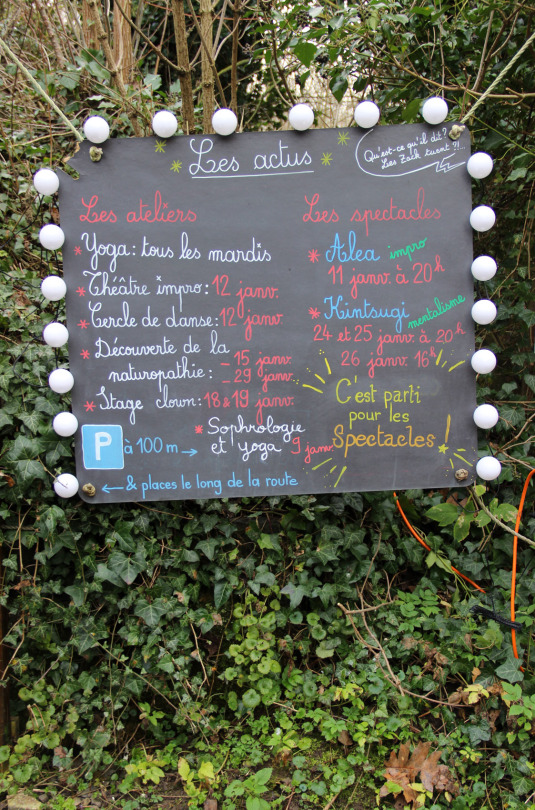 Les actus
Qu'est-ce qu'il dit?
Les Zack tuent ?!..
Les ateliers
* Yoga : tous les mardis
* Théâtre impro : 12 janv.
* Cercle de danse : 12 janv.
* Découverte de la
naturopathie : - 15 janv.
- 29 janv.
* Stage clown : 18 & 19 janv.
* Sophrologie
et yoga 9 janv.
P à 100 m →
← & places le long de la route
Les spectacles
* Alea impro
11 janv. à 20h
* Kintsugi mentalisme
24 et 25 janv. à 20h
26 janv. 16h
C'est parti
pour les
Spectacles !